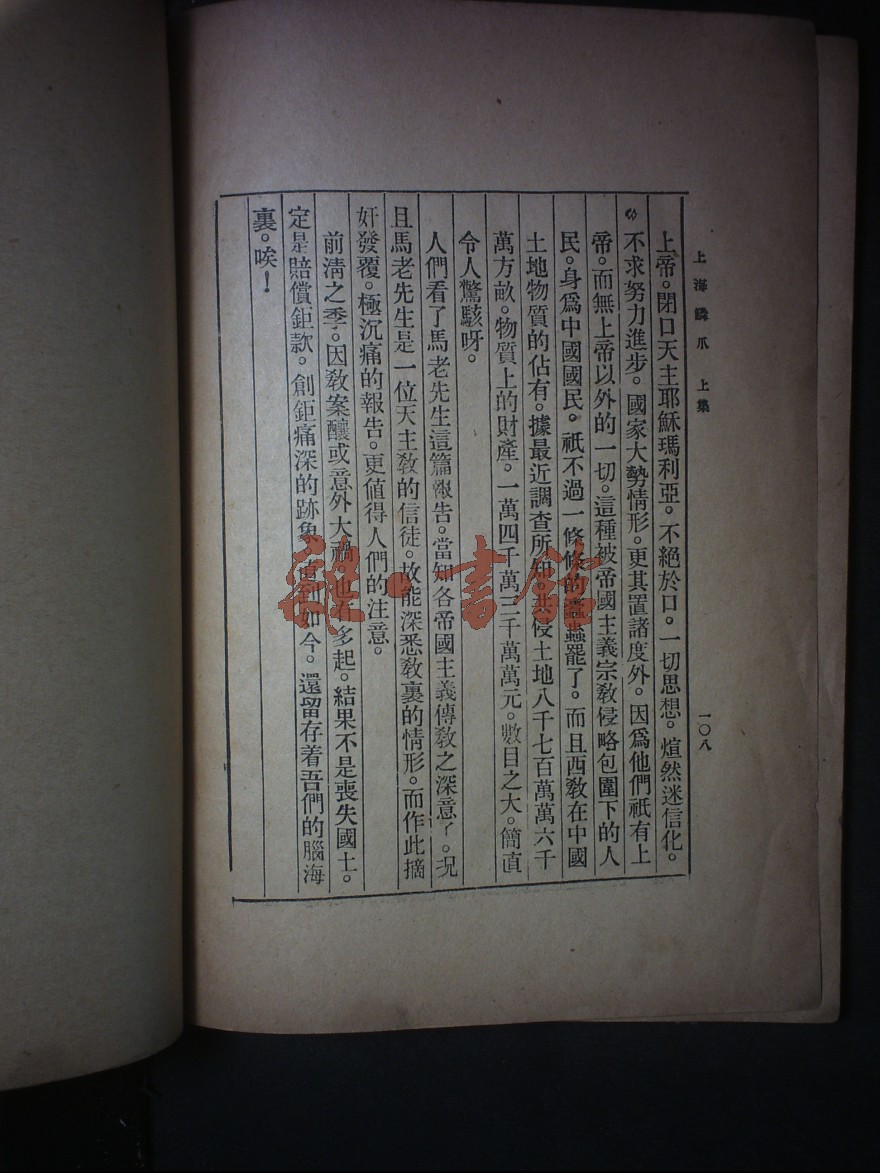 上海鱗爪 上集
一〇八
上帝。閉口天主耶穌瑪利亞。不絕於口。一切思想。煊然迷信化。
不求努力進步。國家大勢情形。更其置諸度外。因爲他們祇有上
帝。而無上帝以外的一切。這種被帝國主義宗敎侵略包圍下的人
民。身爲中國國民。祇不過一條條的蠹蟲罷了。而且西敎在中國
土地物質的佔有。據最近調查所知。共侵土地八千七百萬萬六千
萬方畝。物質上的財產。一萬四千萬三千萬萬元。數目之大。簡直
令人驚駭呀。
人們看了馬老先生這篇報告。當知各帝國主義傳敎之深意了。况
且馬老先生是一位天主敎的信徒。故能深悉敎裏的情形。而作此摘
奸發覆。極沉痛的報告。更値得人們的注意。
前淸之季。因敎案釀成意外大禍。也有多起。結果不是喪失國土。
定是賠償鉅款。創鉅痛深的跡象。直到如今。還留存着吾們的腦海
裏。唉！